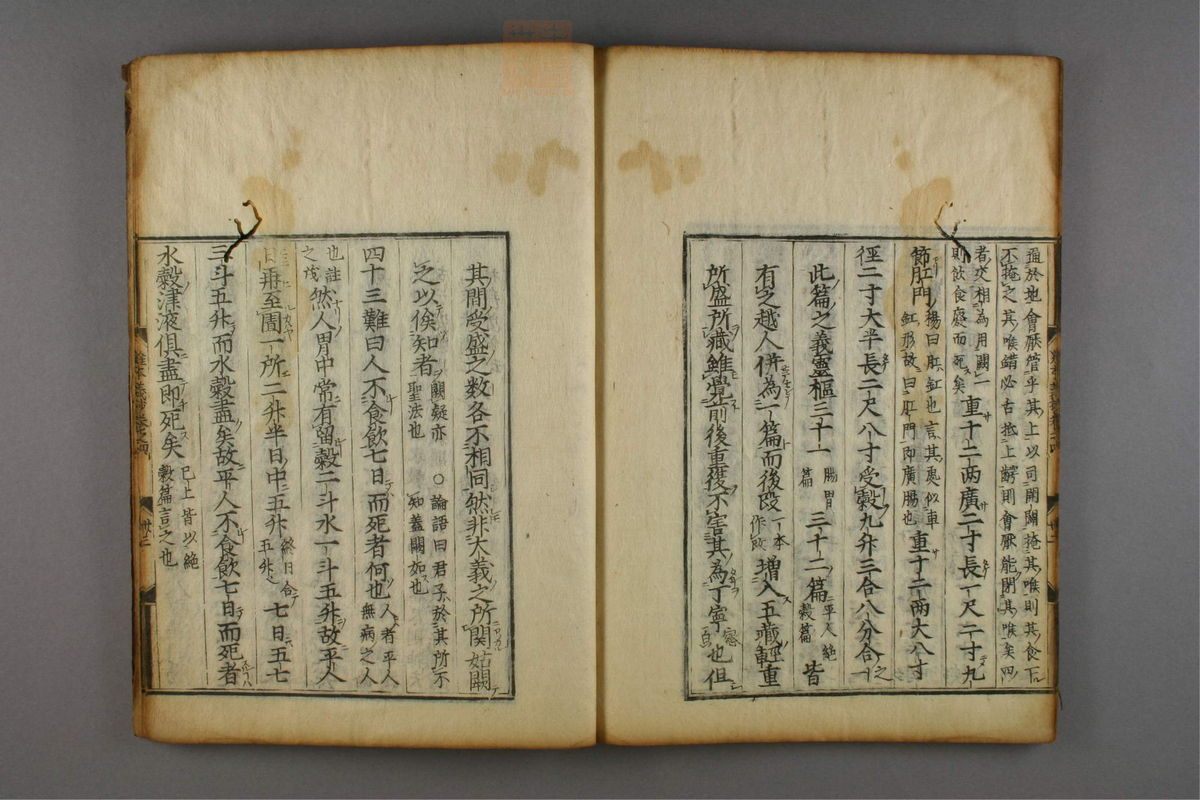 道於地會厭管乎其上以司開闔掩其喉則其食下
不掩之其喉錯必古抵上齶則會厭能閉其喉矣四
者交相為用闕一
則飲食廢而死矣
重十二两廣二寸長一尺二寸九
節肛門
楊曰肛釭也言其處似車
釭形故曰肛門即廣腸也
重十二兩大八寸
徑二寸大半長二尺八寸受穀九升三合八分合之一
此篇之義靈樞三十一
腸胃
篇
三十二篇
平人絶
穀篇
皆
有之越人併為一篇而後段
一本
作改
增入五臟輕重
所盛所藏雖覺前後重復不害其為丁寧也但
其間受盛之数各不相同然非大義之所関姑闕
之以俟知者
闕疑亦
聖法也
○論語曰君子於其所不
知蓋闕如也
四十三難曰人不食飲七日而死者何也
人者平人
無病之人
也註
之戌
然人胃中常有留穀二斗水一斗五升故平人
日再至圊一所二升半日中五升
終日合
五升之
七日五七
三斗五升而水穀盡矣故平人不食飲七日而死者
水穀津液俱盡即死矣
已上皆以絶
穀篇言之也